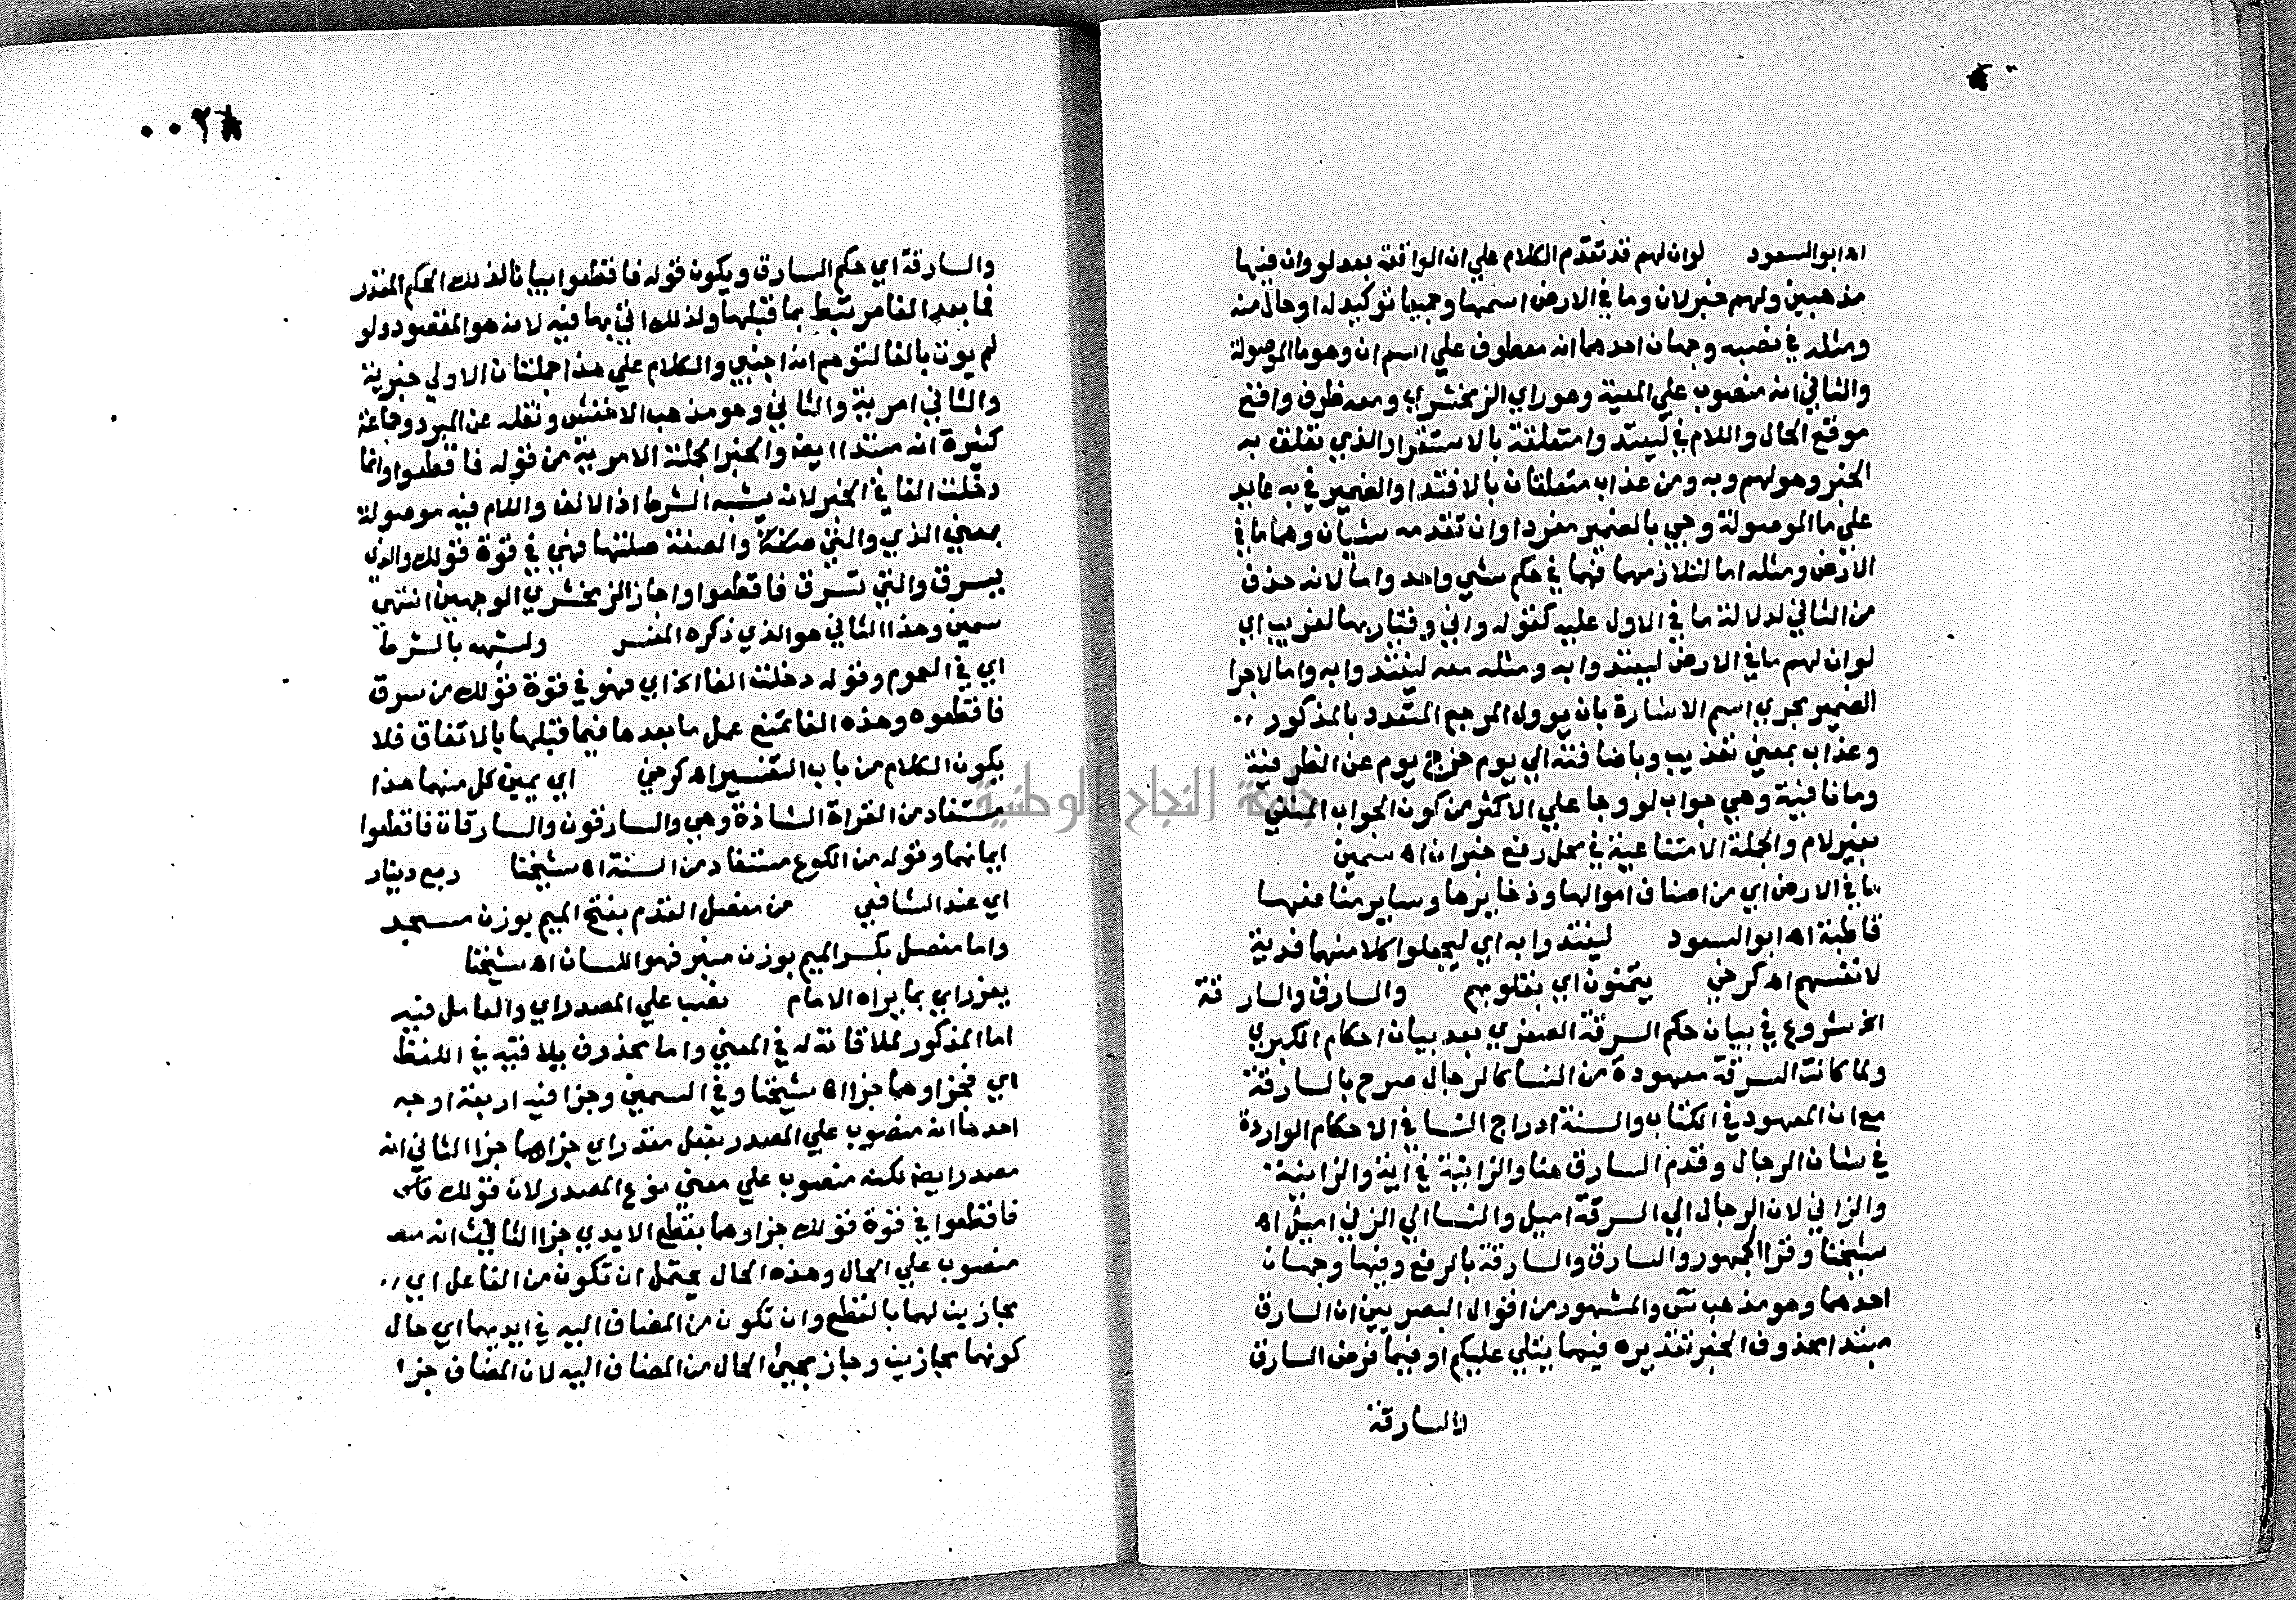 اه ابو السعود لو ان لهم قد تقدم الكلام علي ان الواقعة بعد لو وان فيها
مذهبين ولهم خبر لان وما في الارض اسمها وجميعا توكيد له او حال منه
ومثله في نصبه وجهان احدهما انه معطوف علي اسم ان وهو ما الموصولة
والثاني انه منصوب علي المعية وهو راي الزمخشري ومعه ظرف واقع
موقع الحال واللام في ليفتدوا متعلقة بالاستقرار الذي تعلق به
الخبر وهو لهم وبه ومن عذاب متعلقان بالافتدا والضمير في به عايد
علي ما الموصولة وجي بالضمير مفردا وان تقدمه شيان وهما ما في
الارض ومثله اما لتلازمهما فهما في حكم شي واحد واما لانه حذف
من الثاني لدلالة ما في الاول عليه كقوله واني وقيار بها لغريب اي
لو ان لهم ما في الارض ليفتدوا به ومثله معه ليفتدوا به واما لاجرا
الضمير مجري اسم الاشارة بان يوول المرجع المتعدد بالمذكور
وعذاب بمعني تعذيب وباضافته الي يوم خرج يوم عن الظرفية
وما نافية وهي جواب لو وجا علي الاكثر من كون الجواب المنفي
بغير لام والجملة الامتناعية في محل رفع خبر ان اه سمين
ما في الارض اي من اصناف اموالها وذخايرها وساير منافعها
قاطبة اه ابو السعود ليفتدوا به اي ليجعلوا كلا منهما فدية
لانفسهم اه كرخي يتمنون اي بقلوبهم والسارق والسارقة
الخ شروع في بيان حكم السرقة الصغري بعد بيان احكام الكبري
ولما كانت السرقة معهودة من النسا كالرجال صرح بالسارقة
مع ان المعهود في الكتاب والسنة ادراج النسا في الاحكام الواردة
في شان الرجال وقدم السارق هنا والزانية في اية والزانية
والزاني لان الرجال الي السرقة اميل والنسا الي الزني اميل اه
شيخنا وقرا الجمهور والسارق والسارقة بالرفع وفيها وجهان
احدهما وهو مذهب س والمشهود من اقوال البصريين ان السارق
مبتدا محذوف الخبر تقديره فيما يتلي عليكم او فيما فرض السارق
والسارقة
٠٠٢٨
والسارقة اي حكم السارق ويكون قوله فاقطعوا بيانا لذلك الحكم المقدر
فما بعد الفا مرتبط بما قبلها ولذلك اتي بها فيه لانه هو المقصود ولو
لم يوت بالفا لتوهم انه اجنبي والكلام علي هذا جملتان الاولي خبرية
والثاني امرية والثاني وهو مذهب الاخفش ونقله عن المبرد وجماعة
كثيرة انه مبتدا ايضا والخبر الجملة الامرية من قوله فاقطعوا وانما
دخلت الفا في الخبر لانه يشبه الشرط اذ الالف واللام فيه موصولة
بمعني الذي والتي والصفة صلتها فهي في قوة قولك والذي
يسرق والتي تسرق فاقطعوا واجاز الزمخشري الوجهين انتهي
سمين وهذا الثاني هو الذي ذكره المفسر ولشبهه بالشرط
اي في العموم وقوله دخلت الفا الخ اي فهو في قوة قولك من سرق
فاقطعوه وهذه الفا تمنع عمل ما بعدها فيما قبلها بالاتفاق فلا
يكون الكلام من باب التفسير اه كرخي اي يمين كل منهما هذا
مستفاد من القراة الشاذة وهي والسارقون والسارقات فاقطعوا
ايمانهما وقوله من الكوع مستفاد من السنة اه شيخنا ربع دينار
اي عند الشافعي من مفصل القدم بفتح الميم بوزن مسجد
واما مفصل بكسر الميم بوزن منبر فهو اللسان اه شيخنا
يعزر اي بما يراه الامام نصب علي المصدر اي والعامل فيه
اما المذكور لملاقاته له في المعني واما محذوف يلاقيه في اللفظ
اي فجزاوهما جزا اه شيخنا وفي السمين وجزا فيه اربعة اوجه
احدها انه منصوب علي المصدر بفعل مقدر اي جزاهما جزا الثاني انه
مصدر ايضا لكنه منصوب علي معني نوع المصدر لان قولك
فاقطعوا في قوة قولك جزاوهما بقطع الايدي جزا الثالث انه
منصوب علي الحال وهذه الحال يحتمل ان تكون من الفاعل اي
مجازين لهما بالقطع وان تكون من المضاف اليه في ايديهما اي حال
كونهما مجازين وجاز مجيئ الحال من المضاف اليه لان المضاف جزا
جامعة النجاح الوطنية